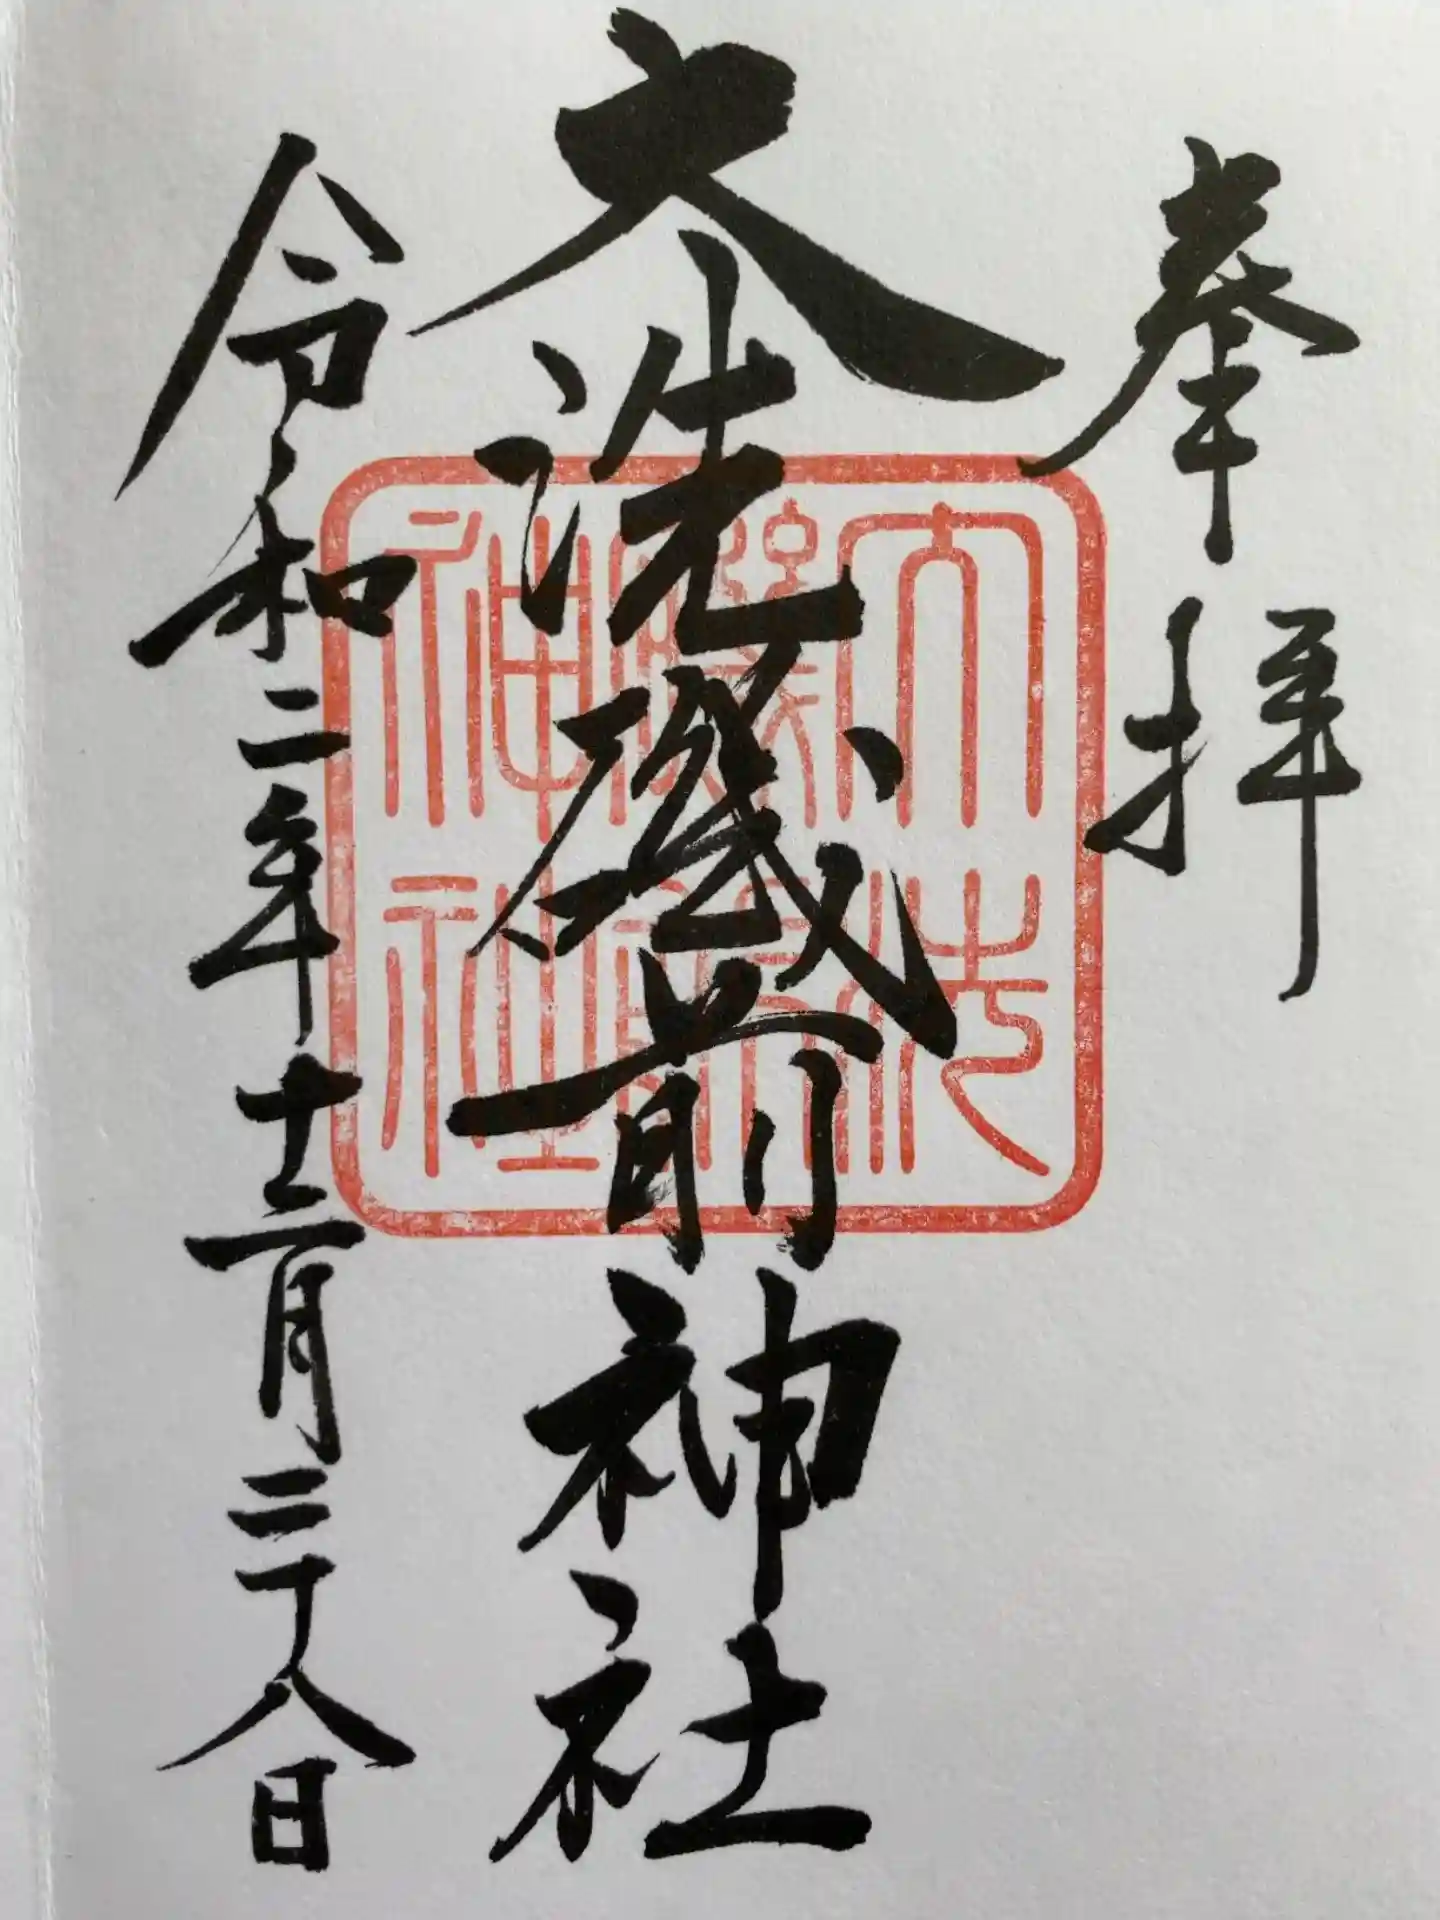 奉拝
大洗磯前神社
令和二年十二月二十八日
大洗
磯前
神社